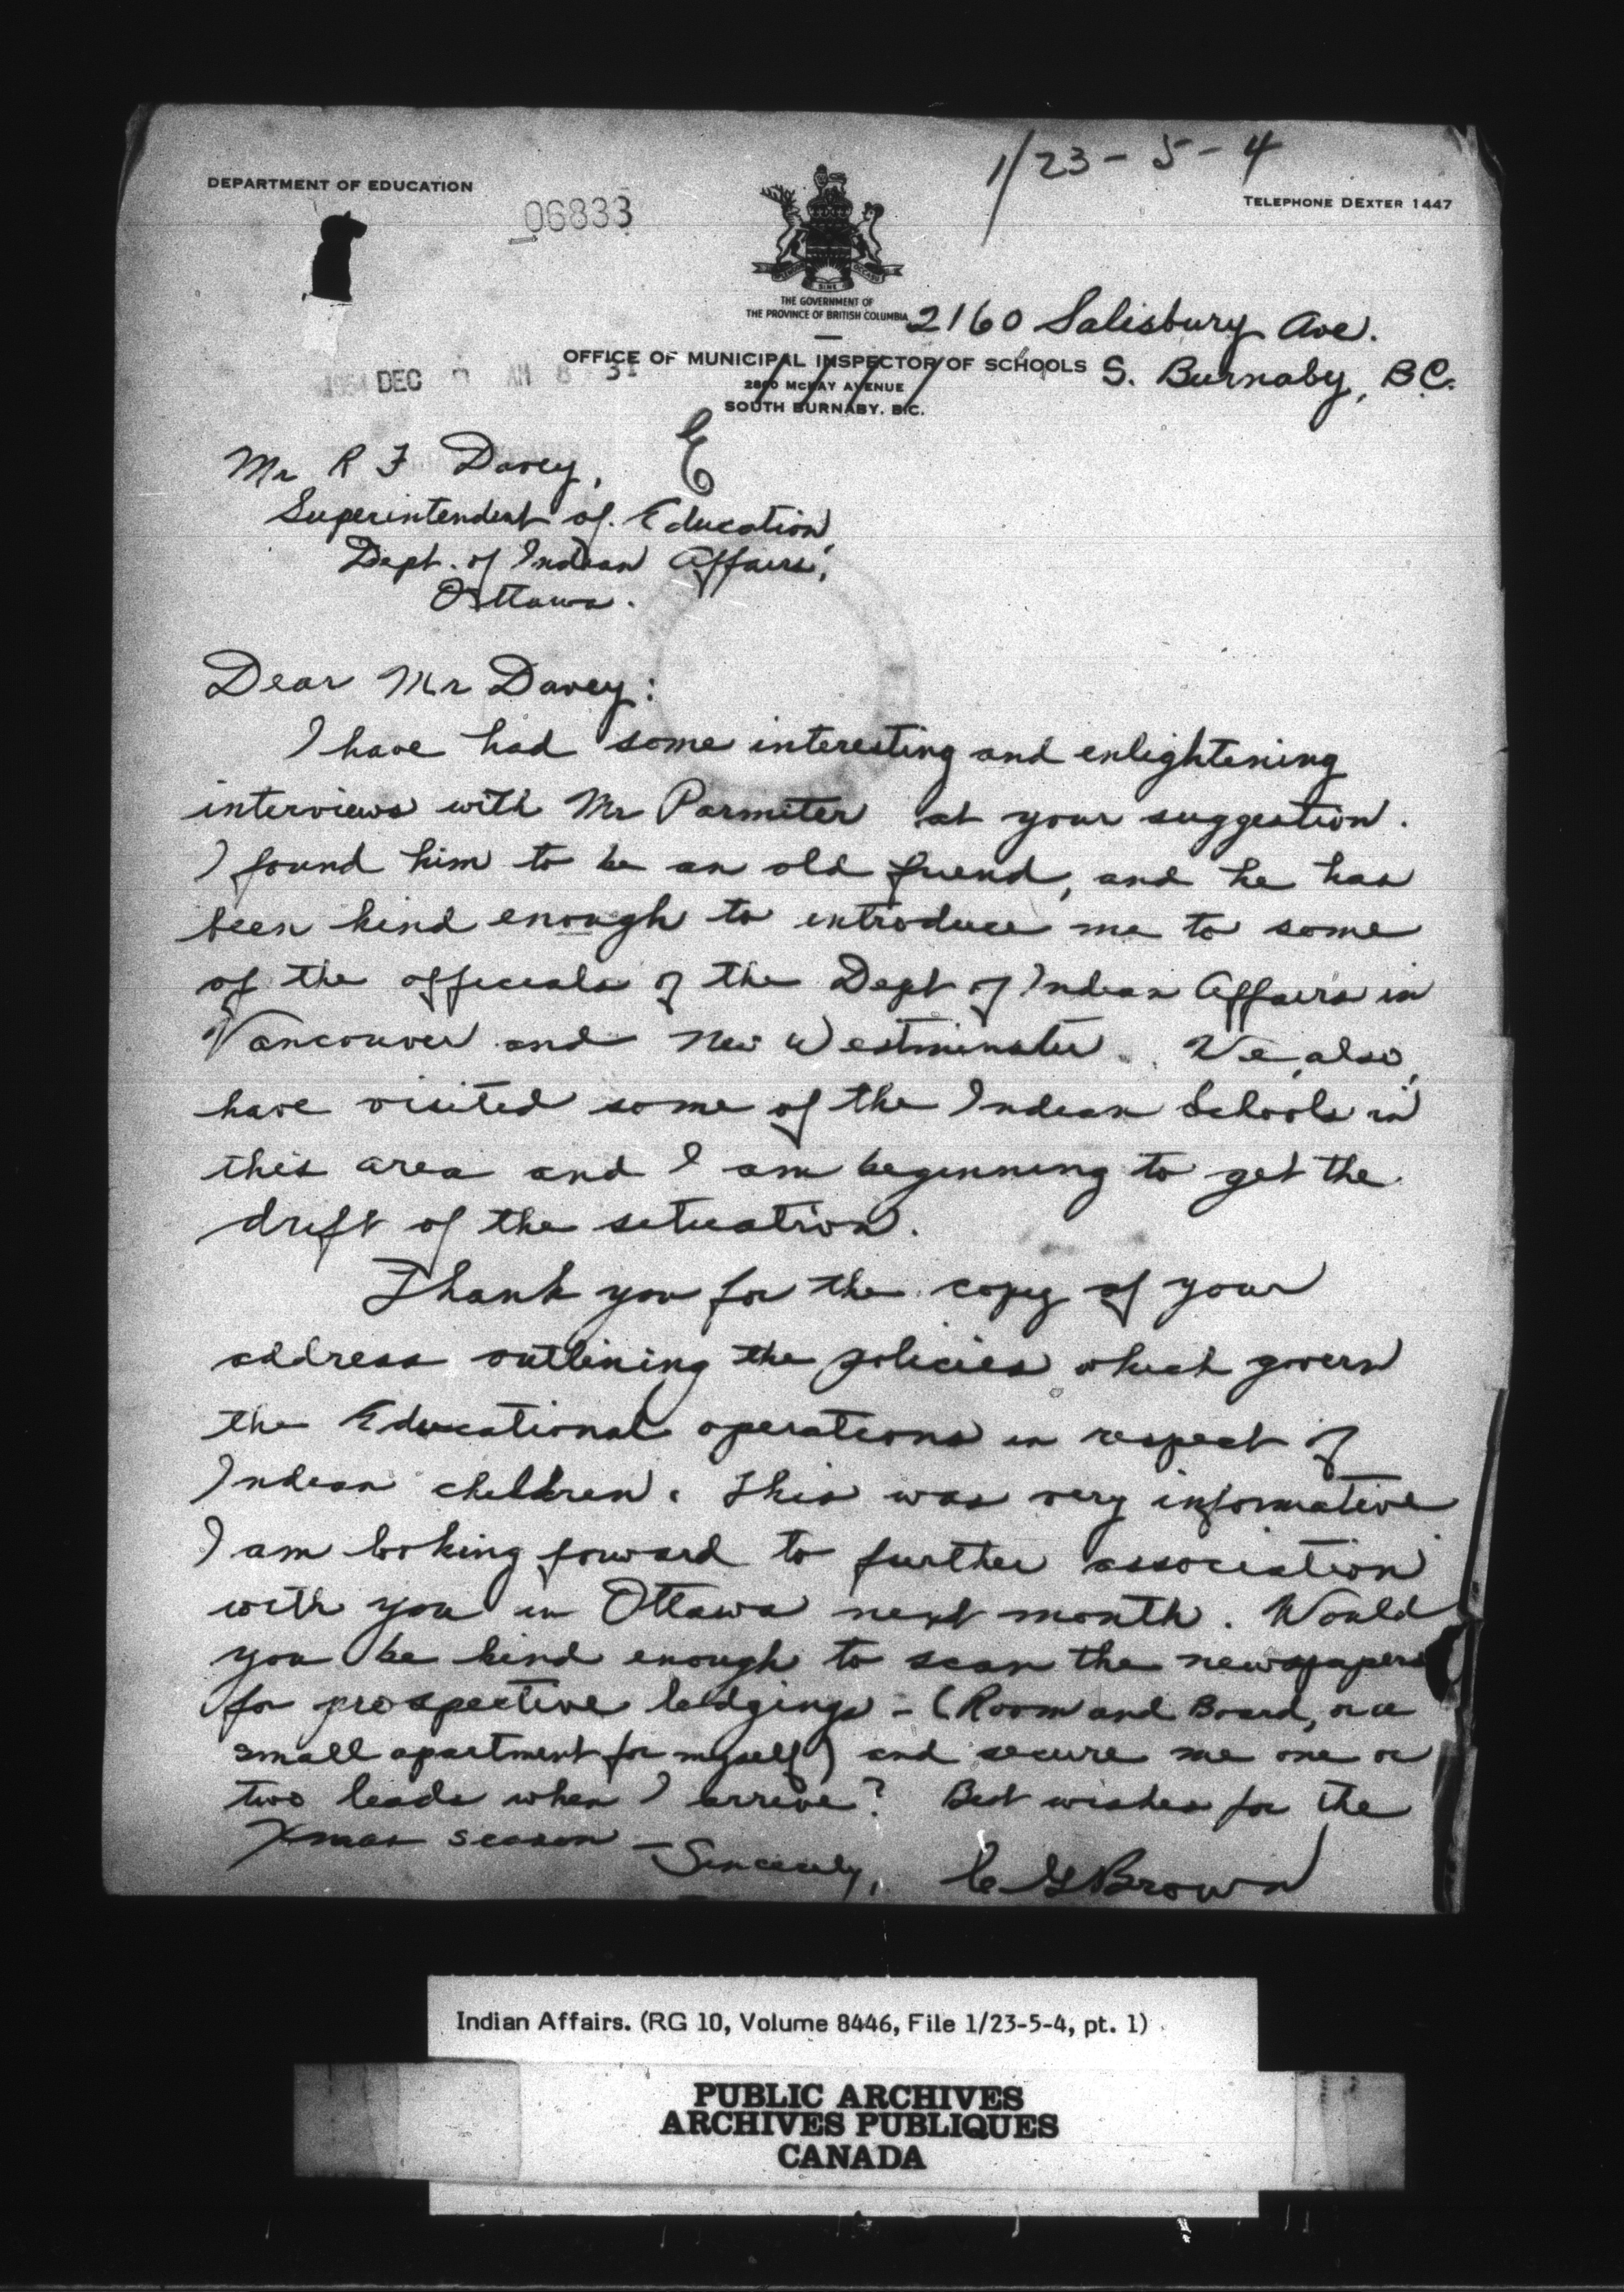 1/23-5-4
DEPARTMENT OF EDUCATION
TELEPHONE DEXTER 1447
06833
SINE
THE GOVERNMENT OF
THE PROVINCE OF BRITISH COLUMBIA
2160 Salisbury Ave.
OFFICE OF MUNICIPAL INSPECTOR OF SCHOOLS
S. Burnaby, B.C.
MCKAY AVENUE
SOUTH BURNABY, B.C.
1954 DEC AM 8 31
E
Mr R F Davey,
Superintendent of Education,
Dept. of Indian Affairs,
Ottawa.
Dear Mr Davey:
I have had some interesting and enlightening
interviews with Mr Parmiter at your suggestion.
I found him to be an old friend, and he has
been kind enough to introduce me to some
of the officials of the Dept of Indian Affairs in
Vancouver and New Westminster. We, also,
have visited some of the Indian Schools in
this area and I am beginning to get the
drift of the situation.
Thank you for the copy of your
address outlining the policies which govern
the Educational operations in respect of
Indian children. This was very informative
I am looking forward to further association
with you in Ottawa next month. Would
you be kind enough to scan the newspapers
for prospective lodgings - (Room and Board, or a
small apartment for myself) and secure me one or
two leads when I arrive? Best wishes for the
Xmas season - Sincerely, C G Brown
Indian Affairs. (RG 10, Volume 8446, File 1/23-5-4, pt. 1)
PUBLIC ARCHIVES
ARCHIVES PUBLIQUES
CANADA